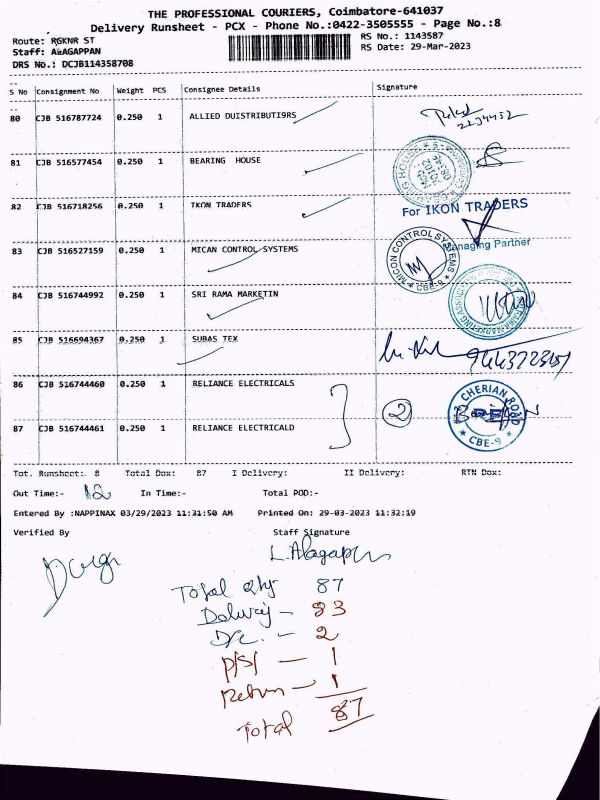 THE PROFESSIONAL COURIERS, Coimbatore-641037
Delivery Runsheet - PCX - Phone No.:0422-3505555 - Page No.:8
Route: RGKNR ST
RS No.: 1143587
Staff: ALAGAPPAN
RS Date: 29-Mar-2023
DRS No.: DCJB114358708
S No Consignment No Weight PCS Consignee Details Signature
80 CJB 516787724 0.250 1 ALLIED DUISTRIBUTI9RS
81 CJB 516577454 0.250 1 BEARING HOUSE
82 CJB 516718256 0.250 1 IKON TRADERS
For IKON TRADERS
Managing Partner
83 CJB 516527159 0.250 1 MICAN CONTROL SYSTEMS
MICON CONTROL SYSTEMS
CBE-9
84 CJB 516744992 0.250 1 SRI RAMA MARKETIN
85 CJB 516694367 0.250 1 SUBAS TEX
86 CJB 516744460 0.250 1 RELIANCE ELECTRICALS
2
CHERIAN ROAD
CBE-9
87 CJB 516744461 0.250 1 RELIANCE ELECTRICALD
Tot. Runsheet: 8 Total Dox: 87 I Delivery: II Delivery: RTN Dox:
Out Time:- 12 In Time:- Total POD:-
Entered By :NAPPINAX 03/29/2023 11:31:50 AM Printed On: 29-03-2023 11:32:19
Verified By Staff Signature
Total Qty 87
Delivery - 83
D/c. - 2
P/S/ - 1
Return - 1
Total 87